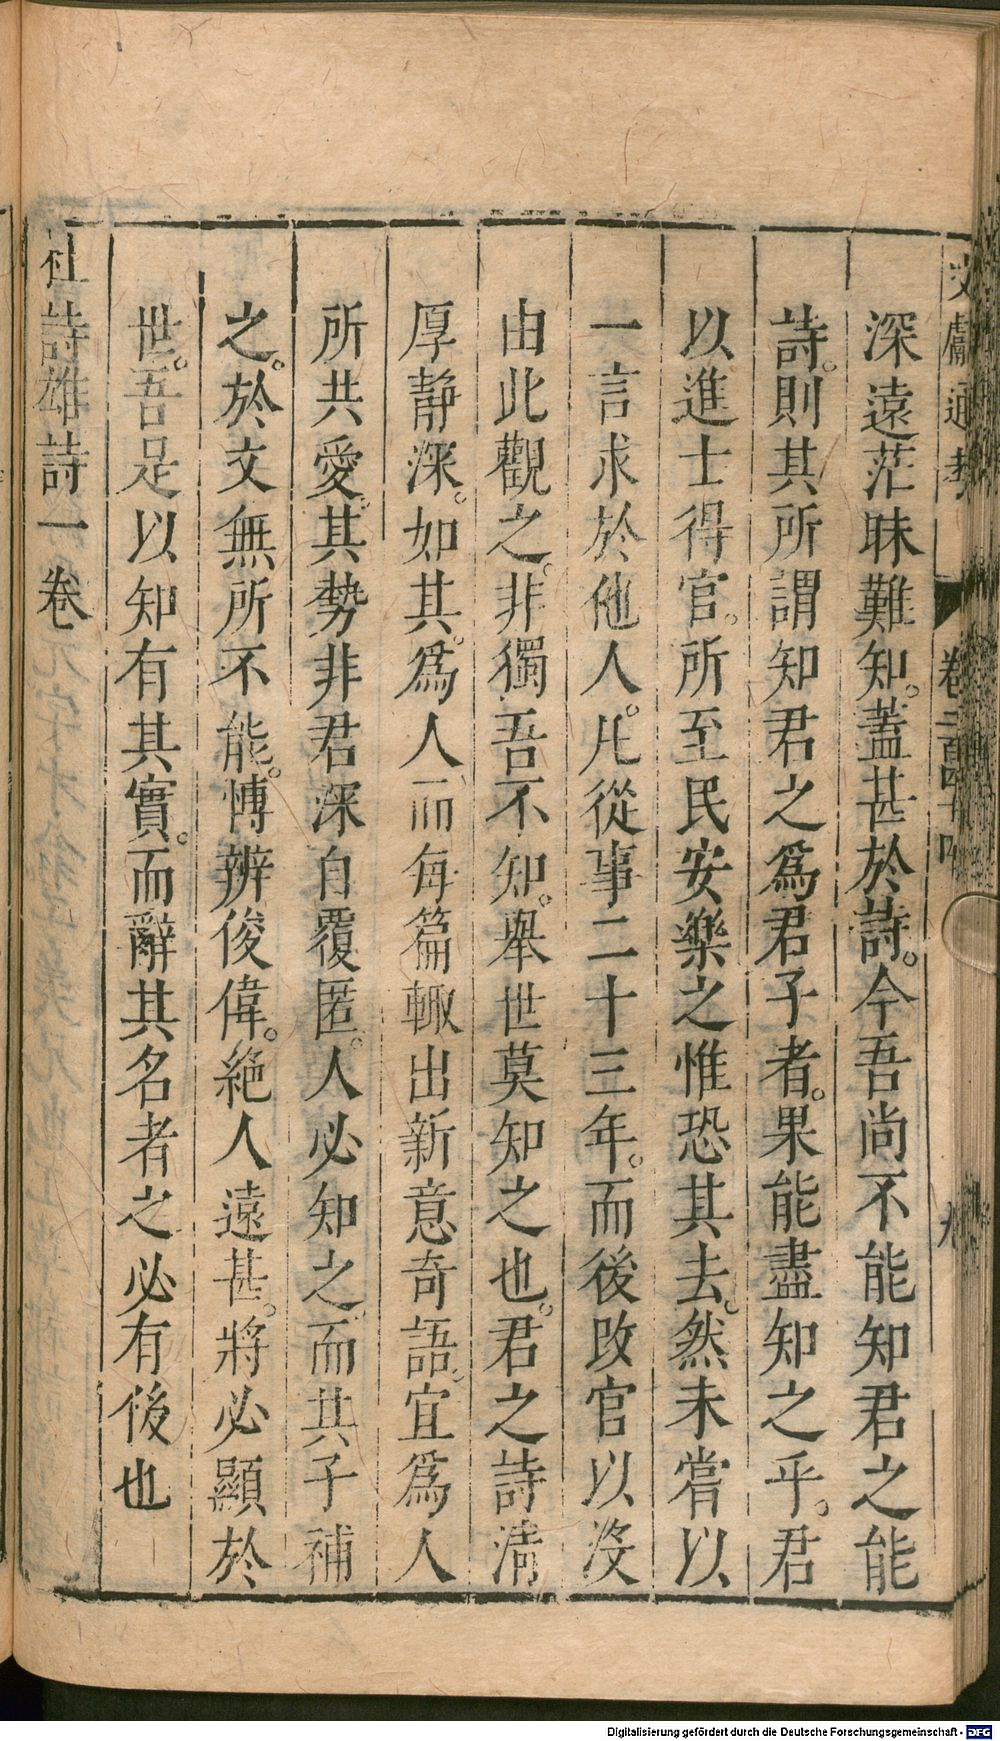 文獻通考 卷二百四十四 九
深遠茫昧難知。蓋甚於詩。今吾尚不能知君之能
詩。則其所謂知君之爲君子者。果能盡知之乎。君
以進士得官。所至民安樂之惟恐其去。然未嘗以
一言求於他人。凡從事二十三年。而後改官以沒
由此觀之。非獨吾不知。舉世莫知之也。君之詩淸
厚靜深。如其。爲人、而每篇輒出新意奇語。宜爲人
所共愛。其勢非君深自覆匿。人必知之。而其子補
之。於文無所不能。博辨俊偉。絕人遠甚。將必顯於
世。吾足以知有其實。而辭其名者之必有後也
杜詩雄詩一卷
Digitalisierung gefördert durch die Deutsche Forschungsgemeinschaft - DFG